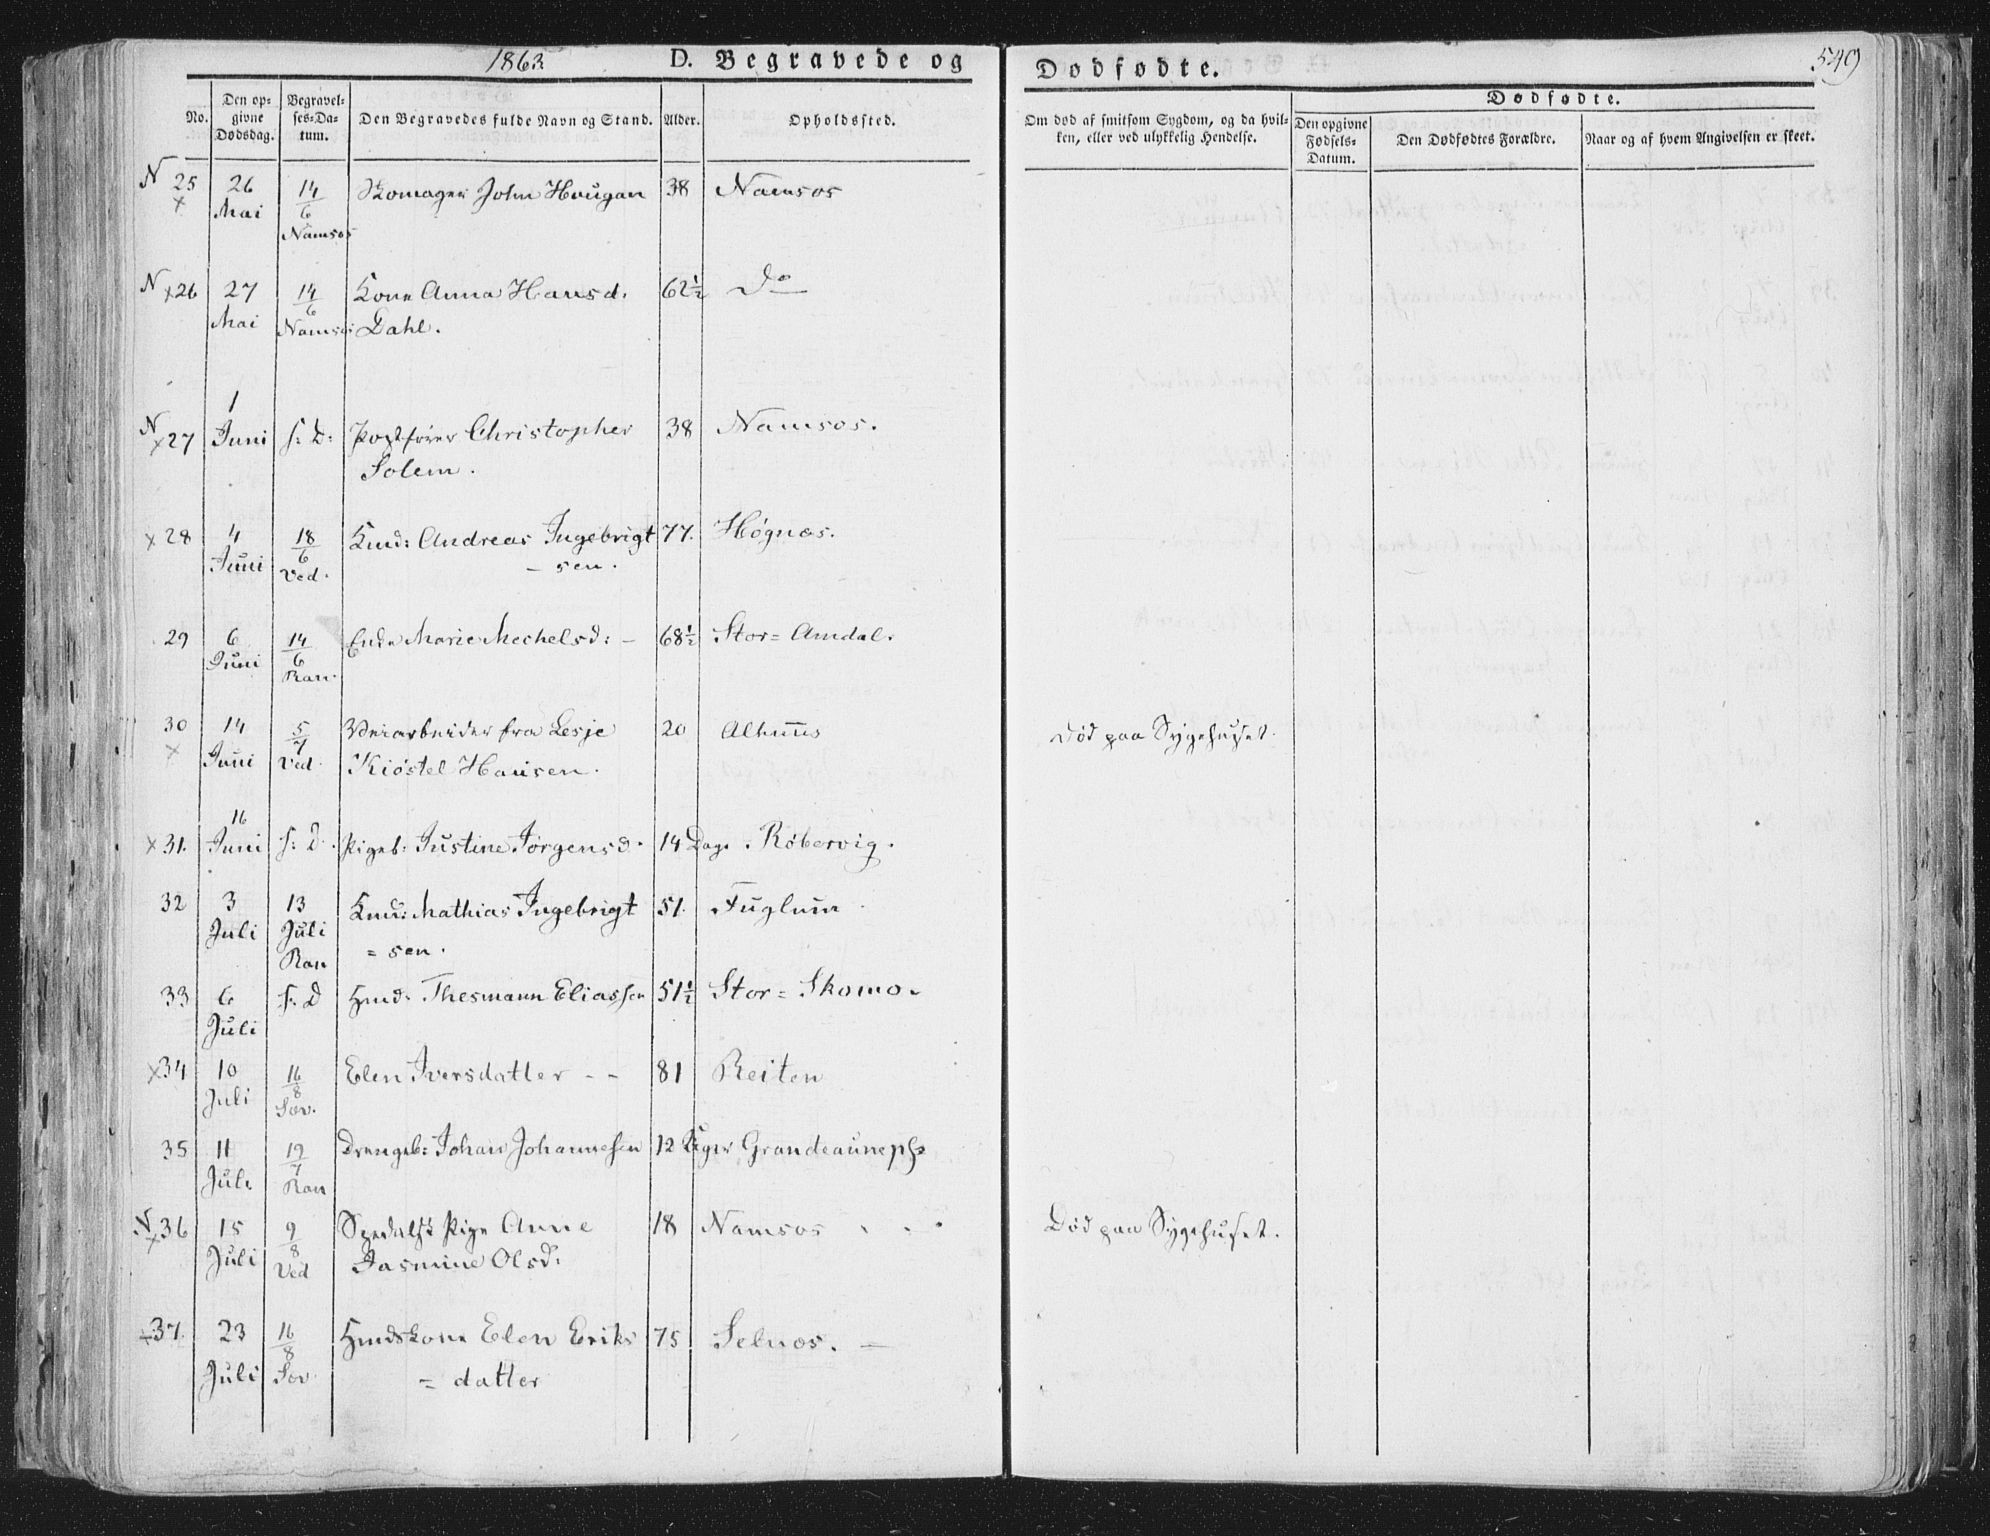 1863
D. Begravede og
Dødfødte.
549
No.
Den opgivne Dødsdag.
Begravelses-Datum.
Den Begravedes fulde Navn og Stand.
Alder.
Opholdssted.
Om død af smitsom Sygdom, og da hvilken, eller ved ulykkelig Hendelse.
Dødfødte.
Den opgivne Fødsels-Datum.
Den Dødfødtes Forældre.
Naar og af hvem Angivelsen er skeet.
N 25 26 14 Skomager John Hougan 38 Namsos
x Mai 6
Namsos
N x26 27 14 Kone Anna Hansd. 62½ Do
Mai 6 Namsos Dahl.
1
N x27 Juni s: D: Postfører Christopher 38 Namsos.
Solem.
x 28 4 18 Kmd: Andreas Ingebrigt 77. Høgnæs.
Juni 6 Ved. - sen.
29 6 14 Enke Marie Mechelsd: - 68½ Stor=Amdal.
Juni 6 Ran.
30 14 5 Veiarbeider fra Lesje 20 Alhuus Død paa Sygehuset.
x Juni 7 Ved. Kiøstel Hansen.
16
x 31. Juni s: D. Pigeb: Justine Jørgensd. 14 Dage Røbervig.
32 3 13 Kmd: Mathias Ingebrigt 51. Fuglum
Juli Juli Ran = sen.
33 6 s: D Hmd: Thesmann Eliassen 51½ Stor=Skomo.
Juli
x34 10 16 Elen Iversdatter - - 81 Reiten
Juli 8 Sæv.
35 11 19 Drengeb: Johan Johannesen 12 Uger Grandeaunepl
Juli 7 Ran
N x36 15 9 Spedalsk Pige Anne 18 Namsos Død paa Sygehuset.
Juli 8 Ved Jasmine Olsd:
x37. 23 16 Hmdskone Elen Eriks 75 Selnæs. -
Juli 8 Sæv = datter